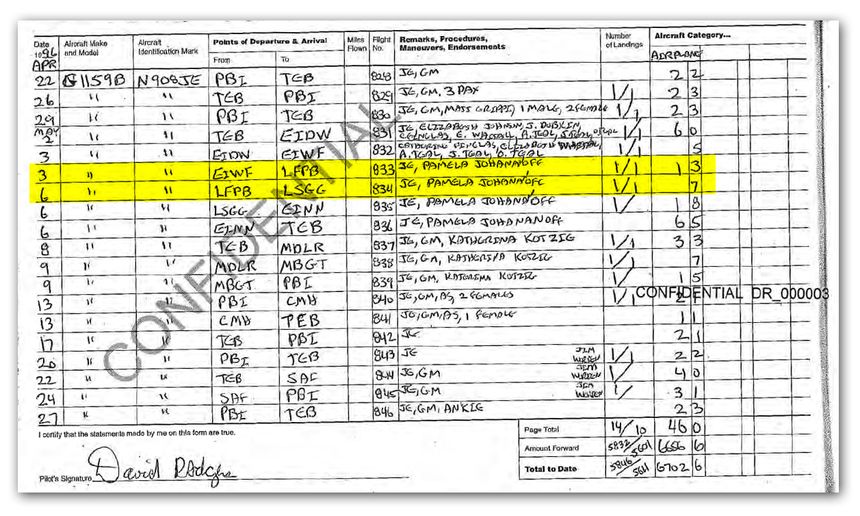 Date 1996 Aircraft Make and Model Aircraft Identification Mark Points of Departure & Arrival From To Miles Flown Flight No. Remarks, Procedures, Maneuvers, Endorsements Number of Landings Aircraft Category... AIRPLANE
APR
22 G1159B N908JE PBI TEB 828 JE, GM 2 2
26 " " TEB PBI 829 JE, GM, 3 PAX 1/1 2 3
29 " " PBI TEB 830 JE, GM, 1 MALE, 2 FEMALE 1/1 2 3
MAY
2 " " TEB EIDW 831 JE, ELIZABETH J. DUBLIN, E. 1/1 6 0
3 " " EIDW EIWF 832 A. TGAL, J. TGAL, O. TGAL 5
3 " " EIWF LFPB 833 JE, PAMELA JOHANANOFF 1/1 1 3
6 " " LFPB LSGG 834 JE, PAMELA JOHANANOFF 1/1 7
6 " " LSGG EINN 835 JE, PAMELA JOHANANOFF 1/ 1 8
6 " " EINN TEB 836 JE, PAMELA JOHANANOFF 6 5
8 " " TEB MDLR 837 JE, GM, KATHERINA KOTZIG 1/1 3 3
9 " " MDLR MBGT 838 JE, GM, KATHERINA KOTZIG 7
9 " " MBGT PBI 839 JE, GM, KATERINA KOTZIG 1/1 1 5
13 " " PBI CMH 840 JE, GM, AS, 2 FEMALES 1/1 CONFIDENTIAL DR_000003
13 " " CMH TEB 841 JE, GM, AS, 1 FEMALE 1 1
17 " " TEB PBI 842 JE 2 1
20 " " PBI TEB 843 JE JIM 1/1 2 2
22 " " TEB SAF 844 JE, GM JIM 1/1 4 0
24 " " SAF PBI 845 JE, GM JIM 1/ 3 1
27 " " PBI TEB 846 JE, GM, ANKIE 2 3
CONFIDENTIAL
I certify that the statements made by me on this form are true. Page Total 14/10 46 0
Amount Forward 5832/5601 6656 6
Pilot's Signature David Rodgers Total to Date 5846/5611 6702 6